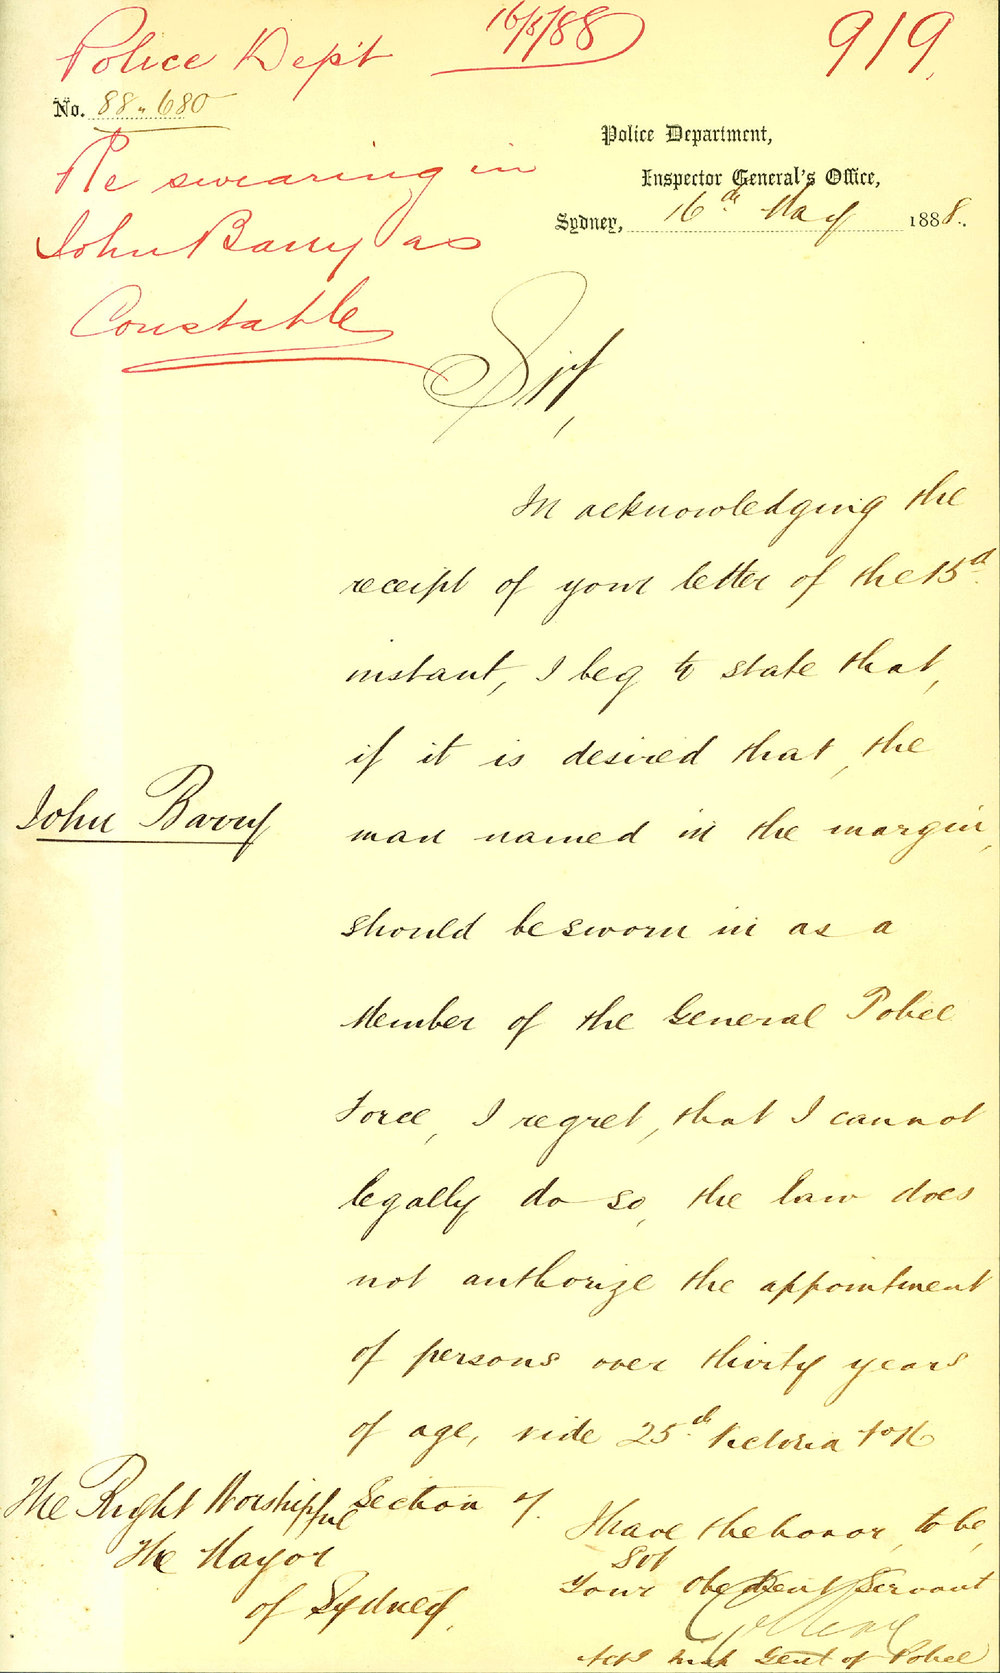 Police Dept 16/5/88 919
No. 88.. 680
Police Department,
Inspector General's Office,
Sydney, 16th May 1888.
Re swearing in
John Barry as
Constable
Sir,
In acknowledging the
receipt of your letter of the 15th
instant, I beg to state that,
if it is desired that, the
John Barry
man named in the margin,
should be sworn in as a
Member of the General Police
Force, I regret, that I cannot
legally do so, the law does
not authorize the appointment
of persons over thirty years
of age, vide 25th Victoria No 16
Section 7.
I have the honor, to be,
Sir
Your Obedient Servant
Actg Insp Genl of Police
The Right Worshipful
The Mayor
of Sydney.